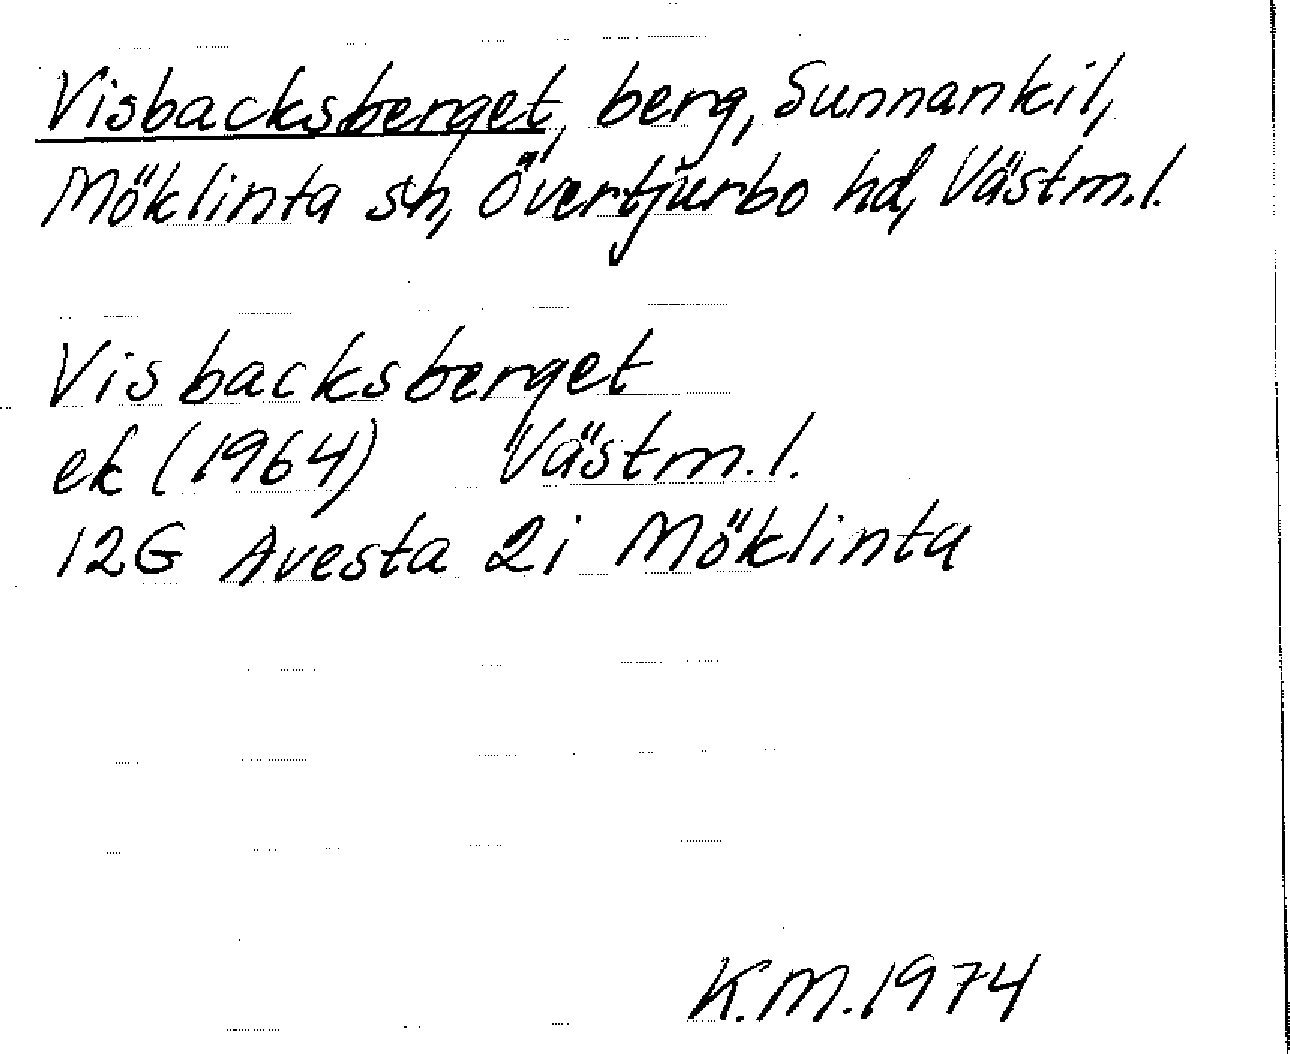 Visbacksberget, berg, Sunnankil,
Möklinta sn, Övertjurbo hd, Västm.l.
Visbacksberget
ek (1964) Västm.l.
12G Avesta 2i Möklinta
K.M.1974